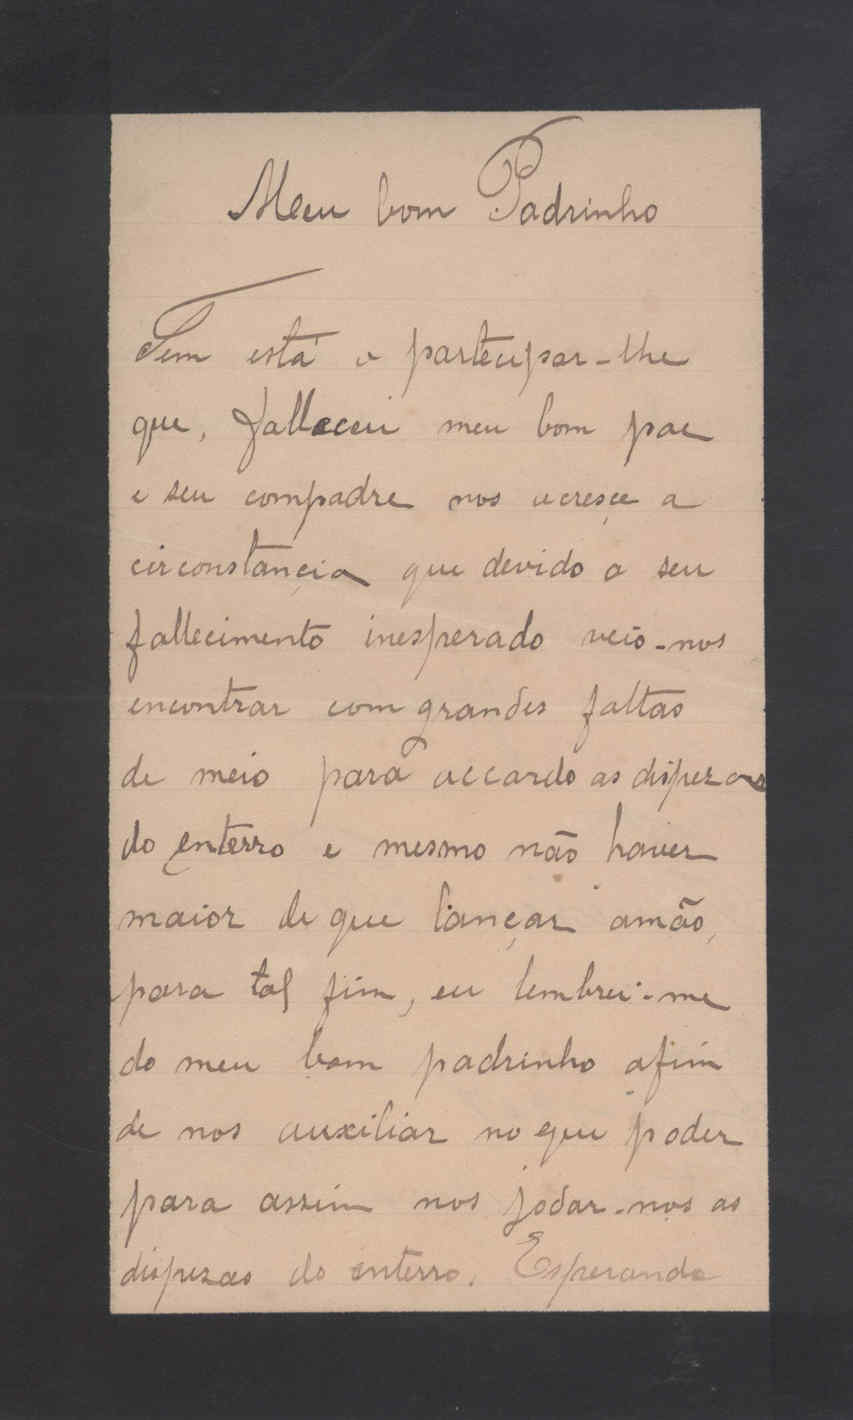 Meu bom Padrinho
Tem está a partecipar-lhe
que, falleceu meu bom pae
e seu compadre nos acresçe a
circonstançia que devido o seu
fallecimento inesperado veio-nos
encontrar com grandes faltas
de meio para accardo as dispezas
do enterro e mesmo não haver
maior de que lançar amão,
para tal fim, eu lembrei-me
do meu bom padrinho afim
de nos auxiliar no que poder
para assim nos jodar-nos as
dispezas do enterro. Esperando